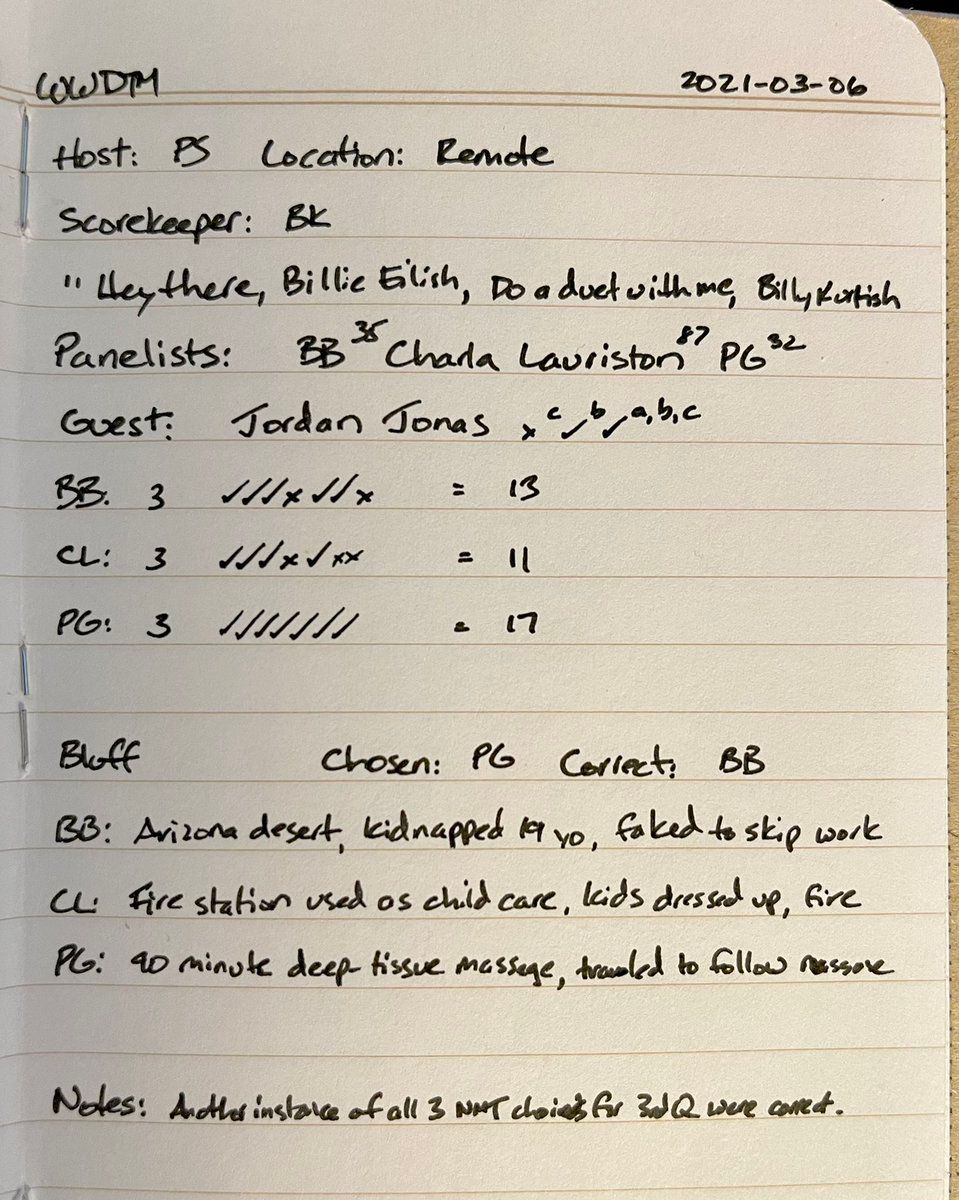 WWDTM 2021-03-06
Host: PS Location: Remote
Scorekeeper: BK
" Hey there, Billie Eilish, Do a duet with me, Billy Kurtish
Panelists: BB 35 Charla Lauriston 87 PG 32
Guest: Jordan Jonas x c ✓ b ✓ a, b, c
BB: 3 ✓✓✓x✓✓x = 13
CL: 3 ✓✓✓x✓xx = 11
PG: 3 ✓✓✓✓✓✓✓ = 17
Bluff Chosen: PG Correct: BB
BB: Arizona desert, kidnapped 19 yo, faked to skip work
CL: Fire station used as child care, kids dressed up, fire
PG: 90 minute deep-tissue massage, traveled to follow
Notes: Another instance of all 3 NMT choices for 3rd Q were correct.